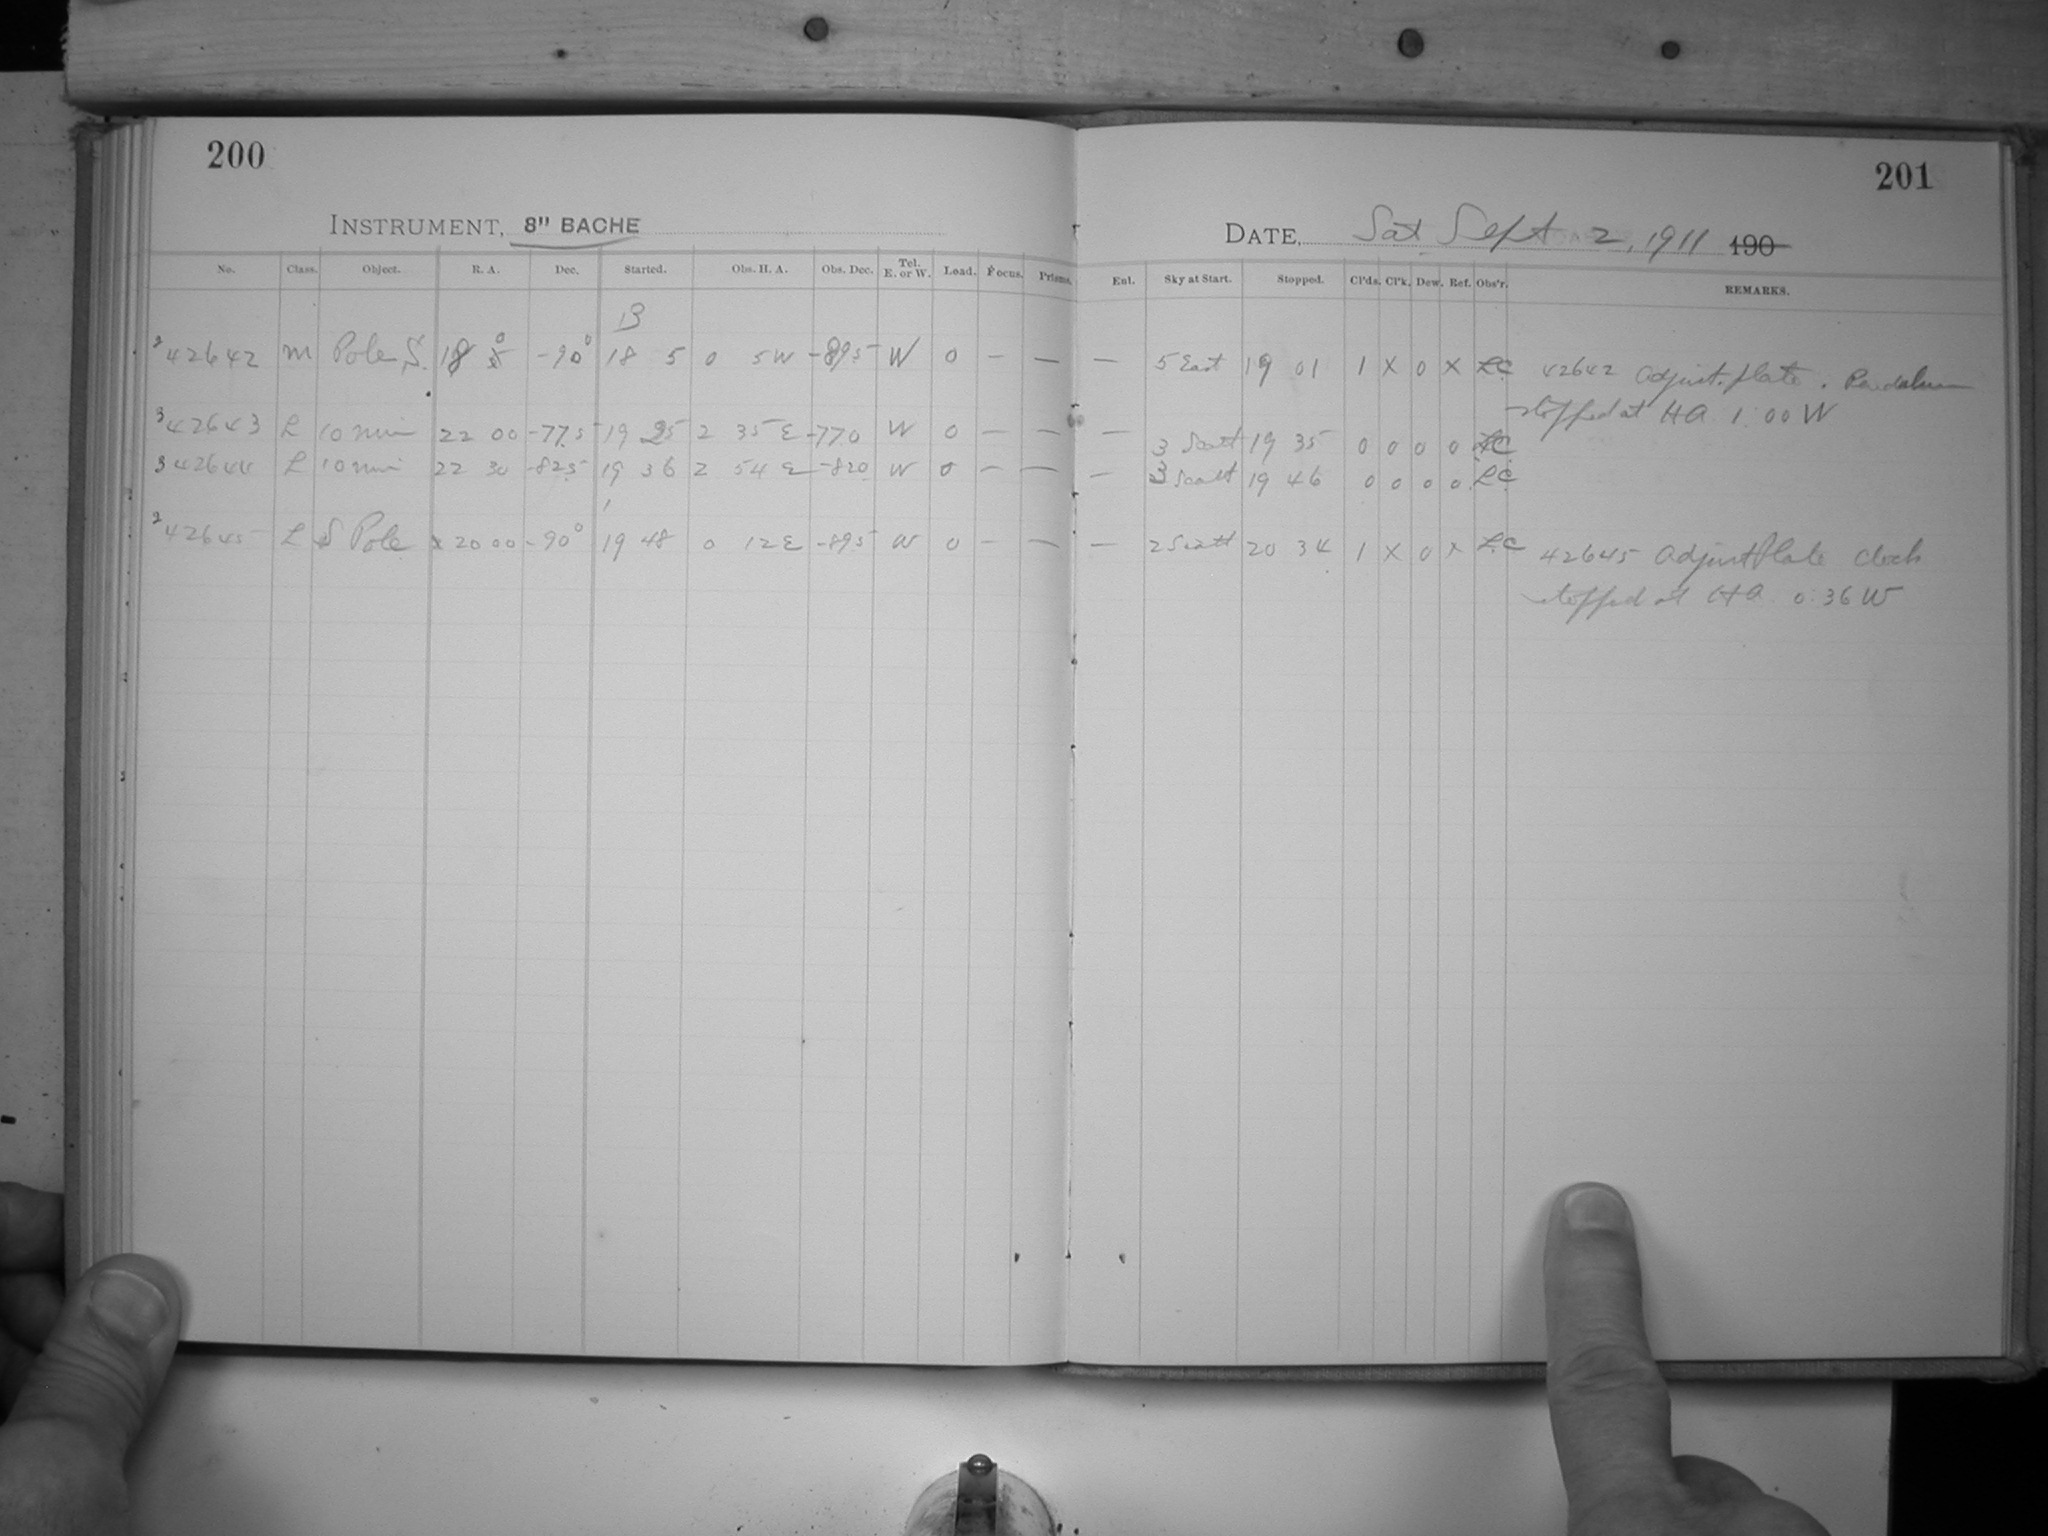 200
INSTRUMENT, 8" BACHE
No. Class. Object. R. A. Dec. Started. Obs. H. A. Obs. Dec. Tel. E. or W. Load. Focus. Prisms.
B
2 42642 M Pole S. 18 0 -90° 18 5 0 5W -895 W 0 — —
3 42643 L 10 min 22 00 -775 19 25 2 35 E -770 W 0 — —
3 42644 L 10 min 22 30 -825 19 36 2 54 E -820 W 0 — —
2 42645 L S Pole 20 00 -90° 19 48 0 12E -895 W 0 — —
201
DATE, Sat Sept 2, 1911 190
Enl. Sky at Start. Stopped. Cl'ds. Cl'k. Dew. Ref. Obs'r. REMARKS.
— 5 East 19 01 1 X 0 X LC 42642 adjust. plate. Pendulum
stopped at HA 1:00 W
— 3 Scatt 19 35 0 0 0 0 LC
— 3 Scatt 19 46 0 0 0 0 LC
— 2 Scatt 20 34 1 X 0 X LC 42645 Adjust Plate Clock
stopped at HA 0:36 W